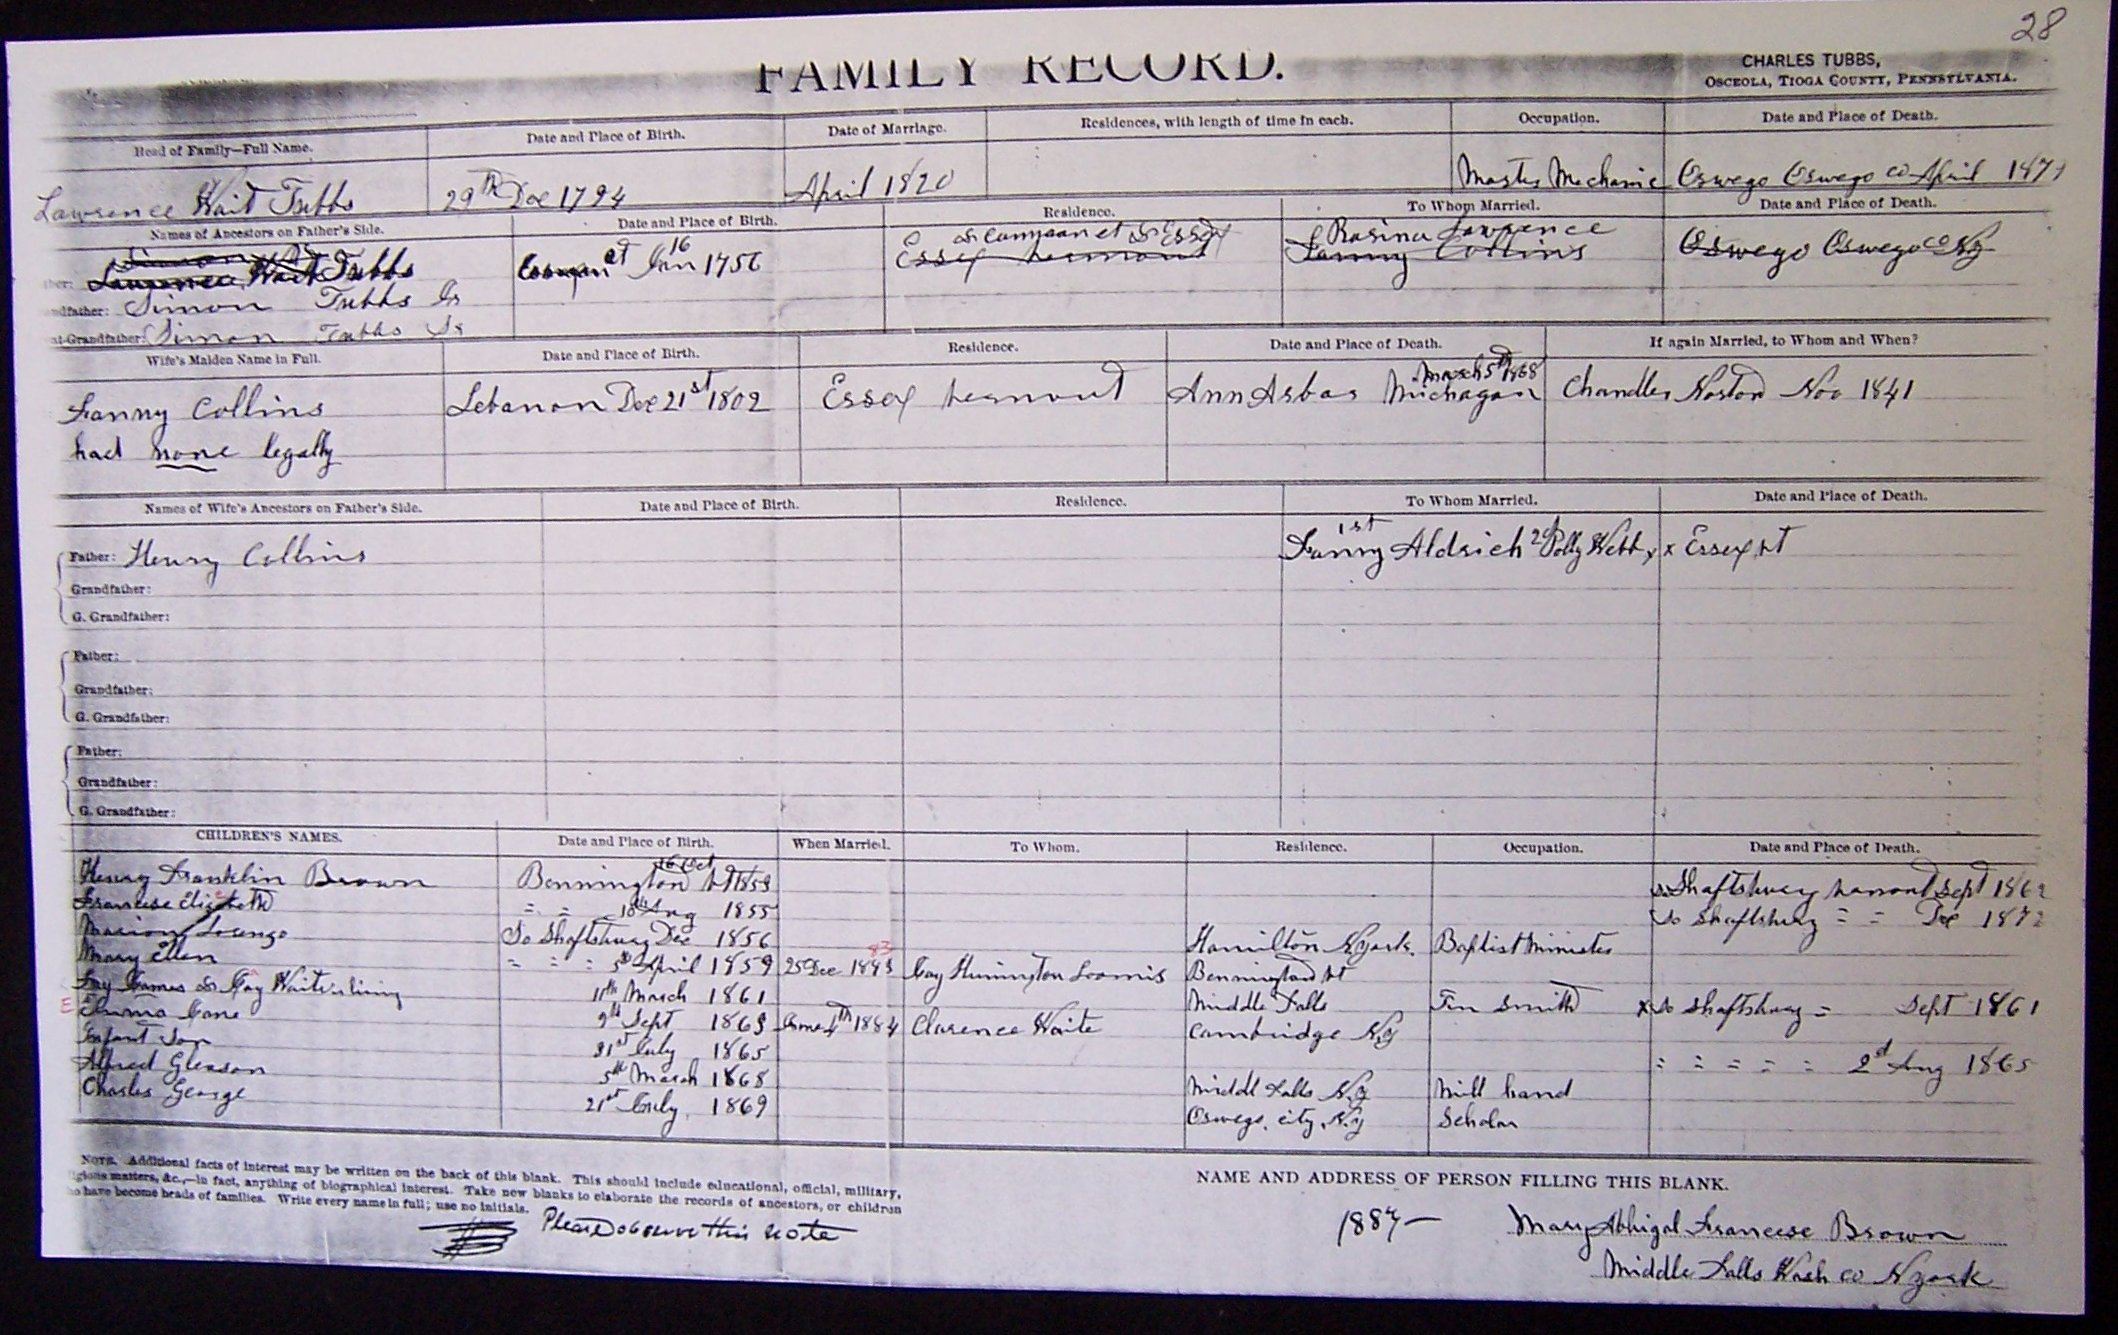 28
FAMILY RECORD.
CHARLES TUBBS,
OSCEOLA, TIOGA COUNTY, PENNSYLVANIA.
Head of Family—Full Name. Date and Place of Birth. Date of Marriage. Residences, with length of time in each. Occupation. Date and Place of Death.
Lawrence Wait Tubbs 29th Dec 1794 April 1820 Master Mechanic Oswego Oswego co April
Names of Ancestors on Father's Side. Date and Place of Birth. Residence. To Whom Married. Date and Place of Death.
Simon
Lawrence Wait Tubbs Jan 16 1756 Essex vermont Rosina Lawrence Fanny Collins Oswego Oswego co Ny
ndfather: Simon Tubbs Jr
at-Grandfather: Simon Tubbs Sr
Wife's Maiden Name in Full. Date and Place of Birth. Residence. Date and Place of Death. If again Married, to Whom and When?
Fanny Collins Lebanon Dec 21st 1802 Essex vermont Ann Arbor Michagan March 5th 1868 Chandler Norton Nov 1841
had none legally
Names of Wife's Ancestors on Father's Side. Date and Place of Birth. Residence. To Whom Married. Date and Place of Death.
Father: Henry Collins 1st Fanny Aldrich 2d Polly Webb x x Essex vt
Grandfather:
G. Grandfather:
Father:
Grandfather:
G. Grandfather:
Father:
Grandfather:
G. Grandfather:
CHILDREN'S NAMES. Date and Place of Birth. When Married. To Whom. Residence. Occupation. Date and Place of Death.
Henry Franklin Brown Bennington vt 16 Oct 1853 So Shaftsbury vermont Sept 1862
Francese Elizebeth " " 10th Aug 1855 So Shaftsbury = = Dec 1872
Marion Lorenzo So Shaftsbury Dec 1856 Hamilton N york. Baptist minister
Mary Ellen = = = 5th April 1859 25 Dec 1883 83 Gay Hunnington Loomis Bennington vt
Fay James or Gay Waite 11th March 1861 Middle Falls Tin Smith x So Shaftsbury = Sept 1861
E Emma Jane 9th Sept 1863 4th 1884 Clarence Waite Cambridge N.y
Infant Son 31st July 1865 = = = = = 2d Aug 1865
Alfred Gleason 5th March 1868 Middl Falls N.y Mill hand
Charles George 21st July 1869 Oswego. city, N.y Scholar
NOTE. Additional facts of interest may be written on the back of this blank. This should include educational, official, military,
igious matters, &c.,—in fact, anything of biographical interest. Take new blanks to elaborate the records of ancestors, or children
ho have become heads of families. Write every name in full; use no initials.
Please observe this note
NAME AND ADDRESS OF PERSON FILLING THIS BLANK.
1887— Mary Abigal Francese Brown
Middle Falls Wash co N york